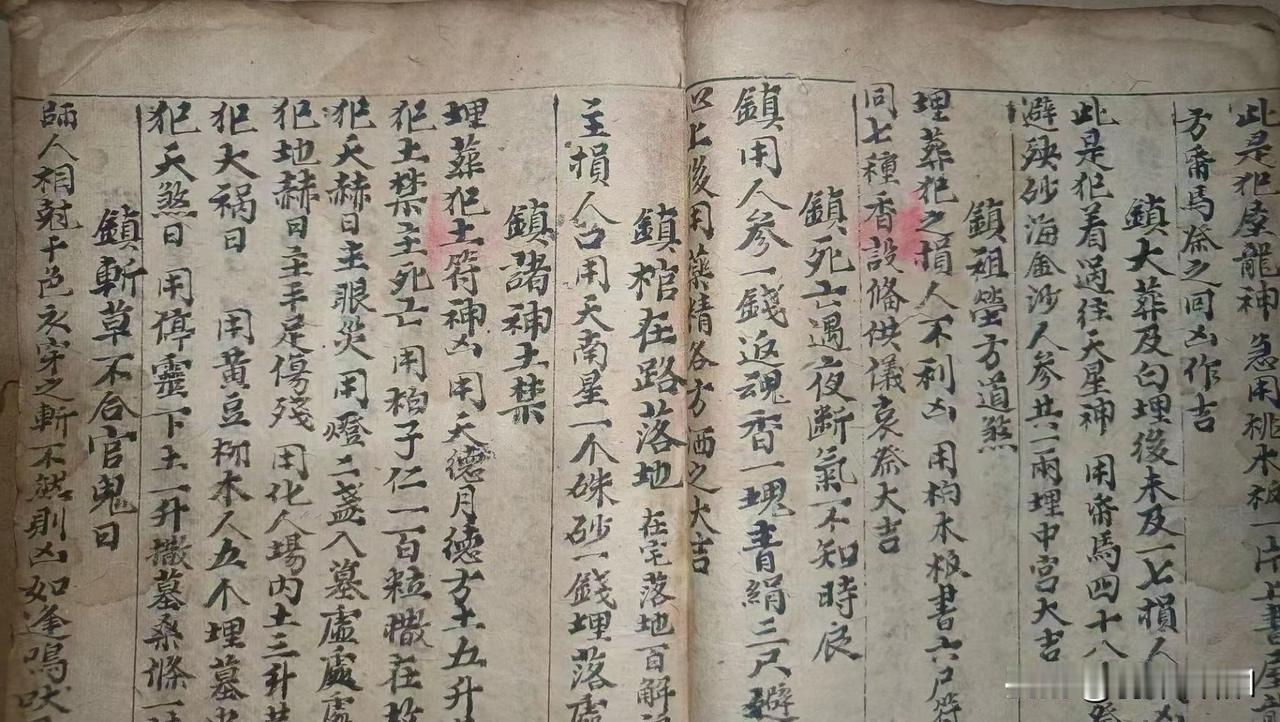 此是犯屋龍神 急用桃木板一片上書屋
方齋馬祭之回凶作吉
鎮大葬及白埋後未及一七損人
此是犯着過往天星神 用齋馬四十八
避殃砂海金沙人參共一兩埋中宮大吉
鎮祖塋方道煞
埋葬犯之損人不利凶 用柏木板書六尺符
同七種香設備供儀哀祭大吉
鎮死亡遇夜斷氣不知時辰
鎮用人參一錢返魂香一塊青絹三尺避
以上後用藥精各方洒之大吉
鎮棺在路落地 在宅落地百解
主損人口用天南星一个硃砂一錢埋落處
鎮諸神土禁
埋葬犯土符神凶 用天德月德方土五升
犯土禁主死亡 用柏子仁一百粒撒在
犯天赫日主眼災 用燈二盞入墓處處
犯地赫日主手足傷殘 用化人場內土三升
犯大禍日 用黃豆柳木人五个埋墓
犯天煞日 用停靈下土一升撒墓桑條一
鎮斬草不合官鬼日
師人相尅十色衣穿之斬不然則凶如逢鳴吠